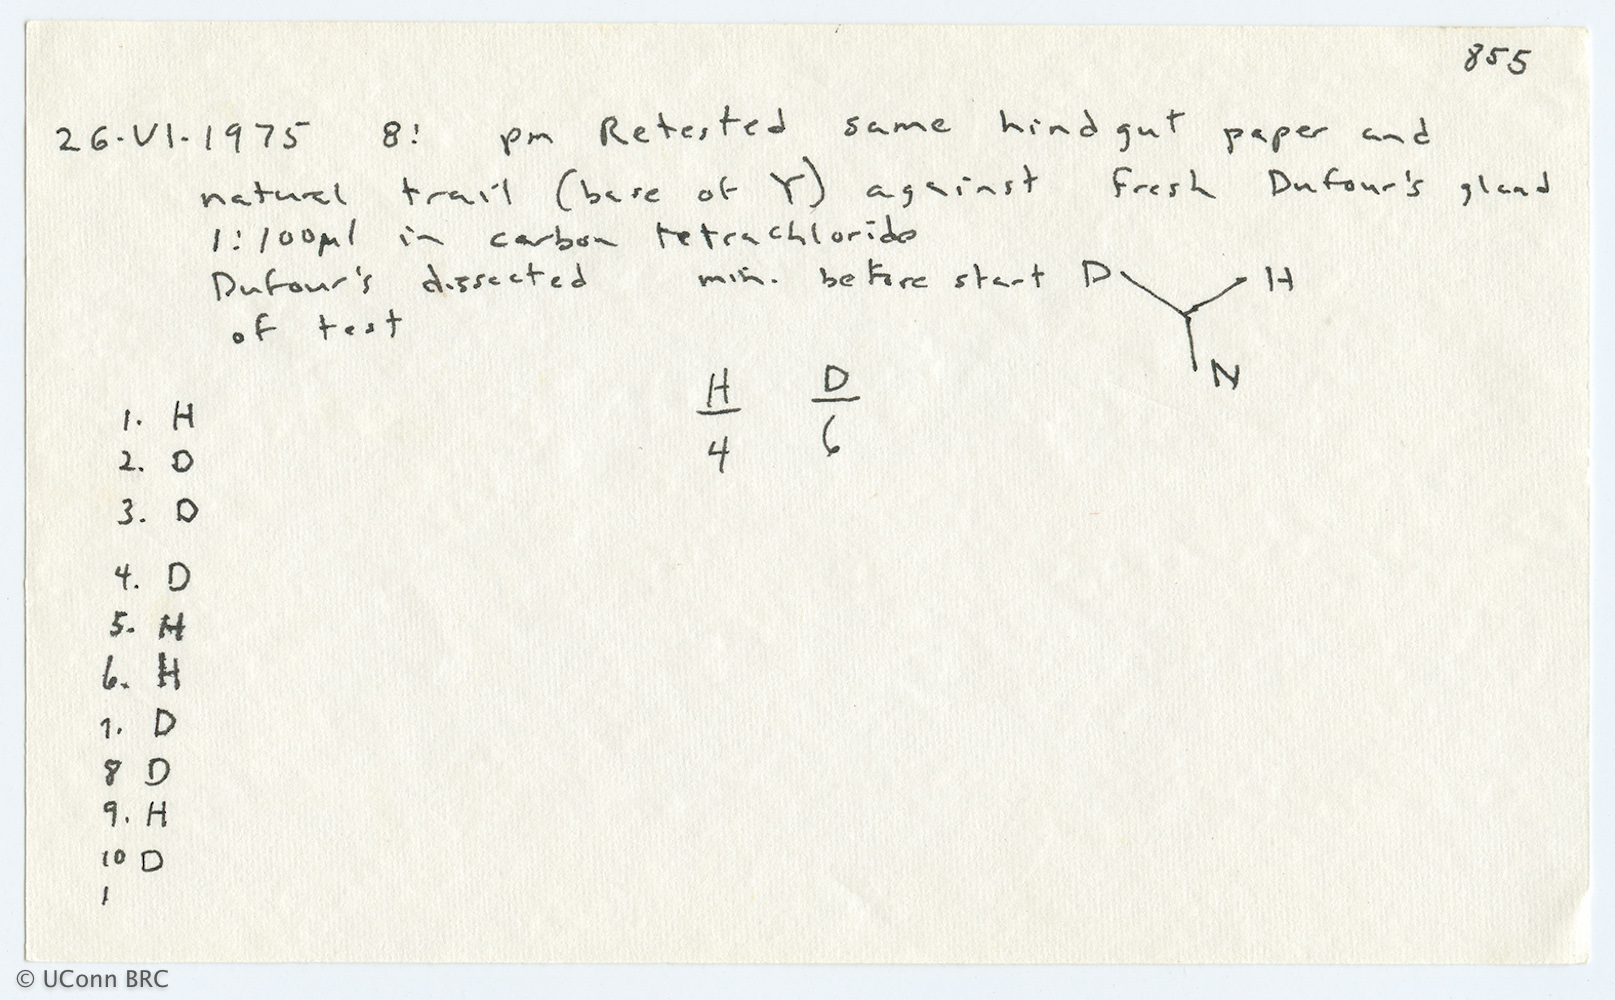 855
26.VI.1975 8: pm Retested same hindgut paper and
natural trail (base of Y) against fresh Dufour's gland
1:100µl in carbon tetrachloride
Dufour's dissected min. before start
of test
D H
N
H D
4 6
1. H
2. D
3. D
4. D
5. H
6. H
7. D
8 D
9. H
10 D
1
© UConn BRC